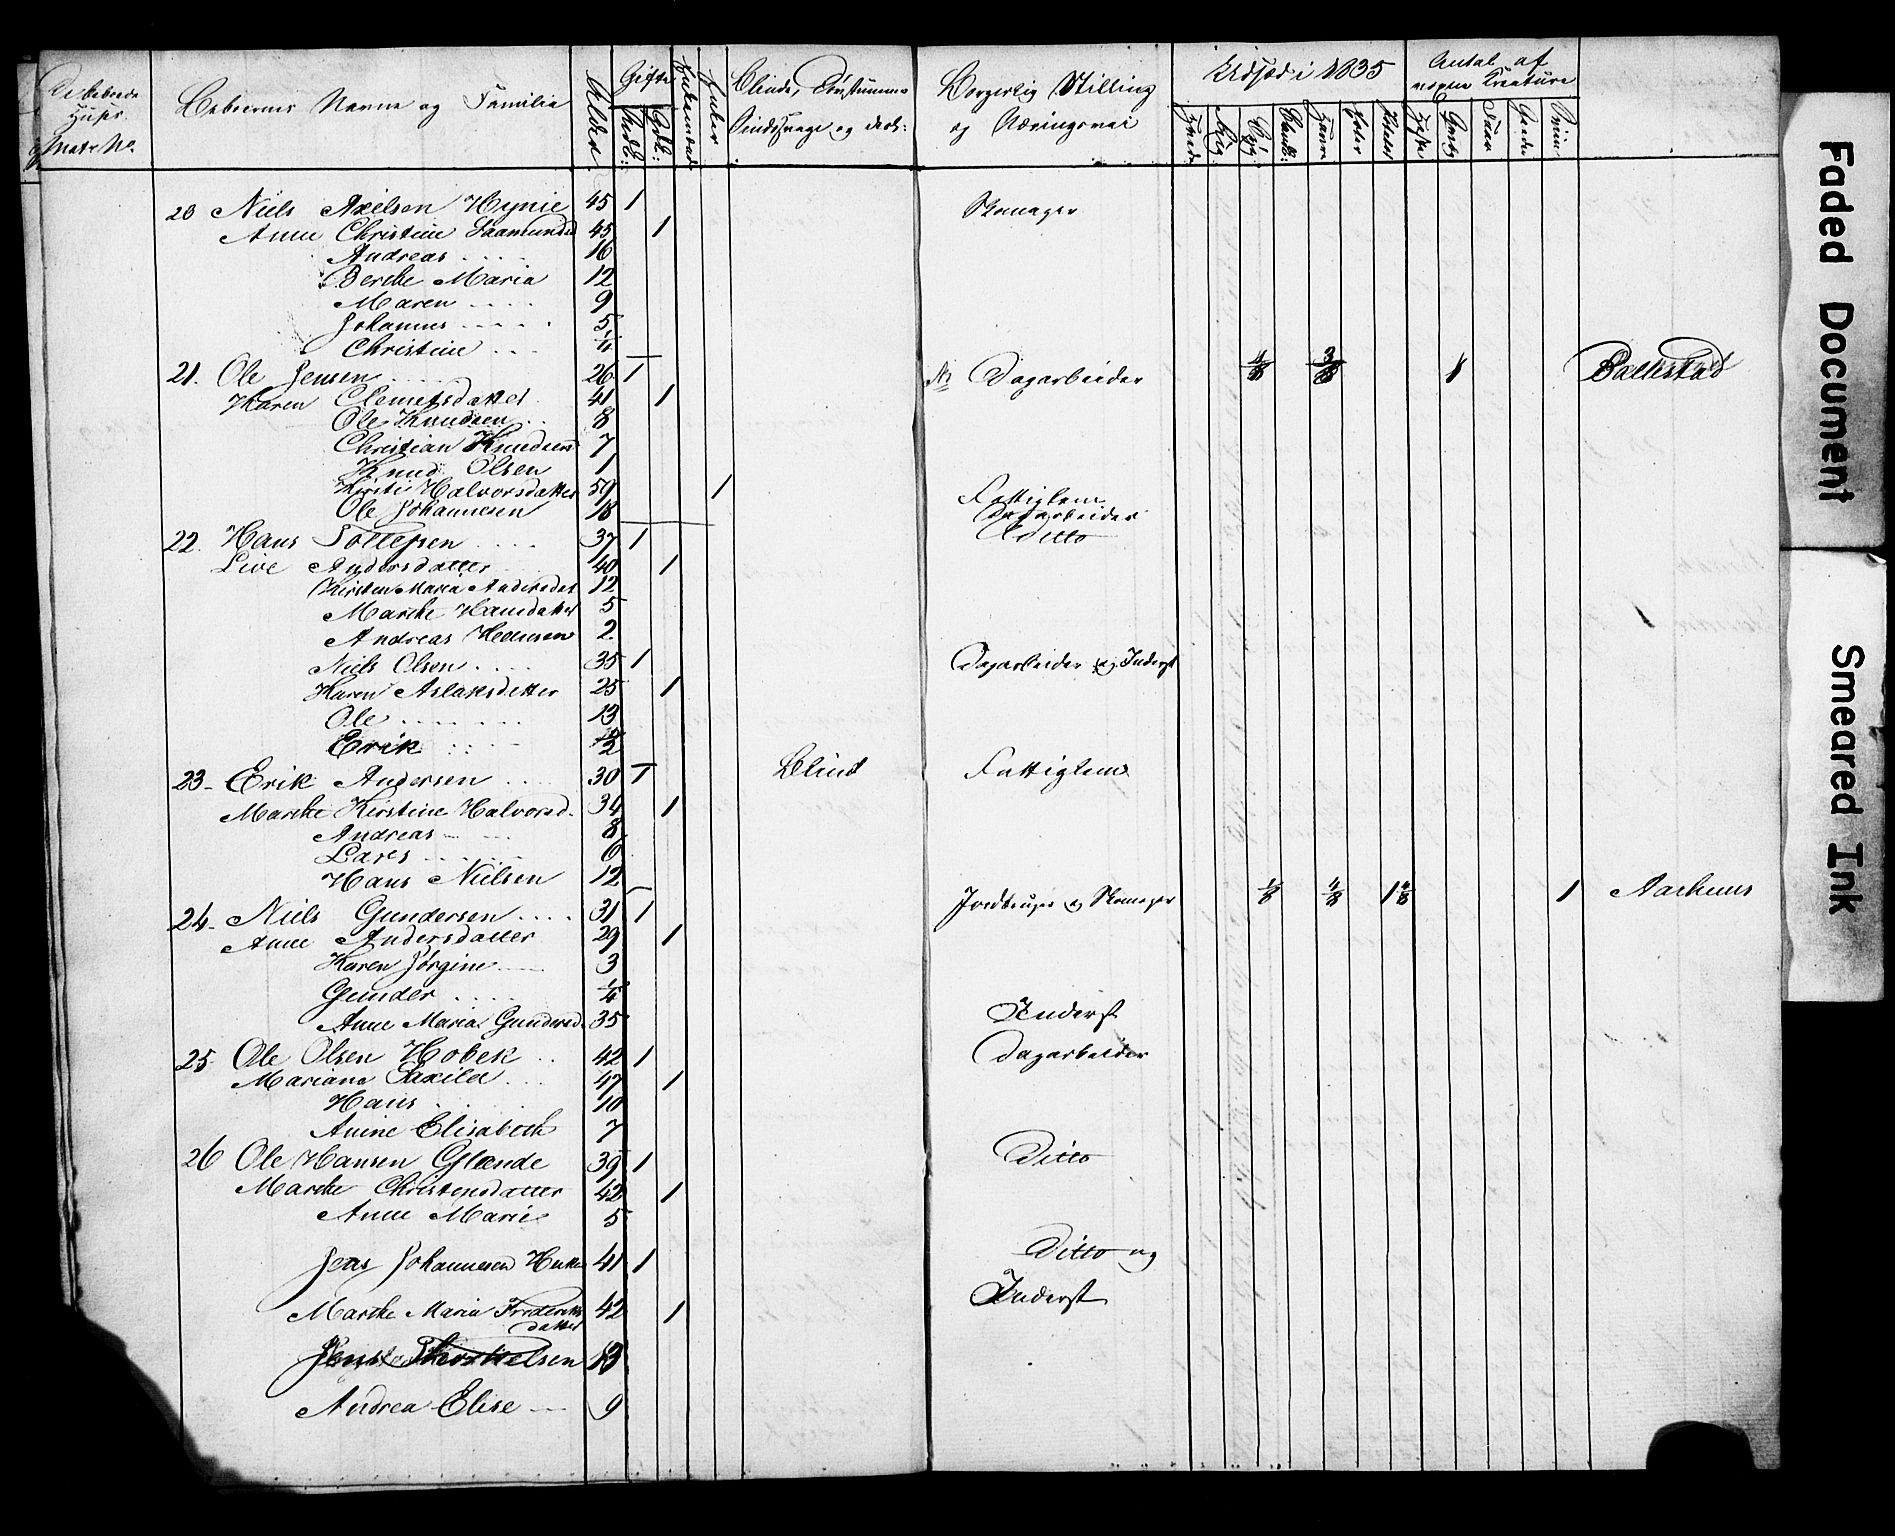 De beboede
Huses
Matr No.
Beboernes Navne og Familie
Alder
Gifte
Enkemænd
Enker
Blinde, Døvstumme
Sindssvage og desl:
Borgerlig Stilling
og Næringsvei
Udsæd i 1835
Hvede
Rug
Byg
Blandk:
Havre
Erter
Poteter
Antal af
nogne Kreature
Heste
Qvæg
Faar
Geder
Sviin
20 Niels Axelsen Hynie 45 1 Skomager
Anne Christine Saamundsd 45 1
Andreas .... 16
Berthe Maria 12
Maren .... 9
Johannes .... 5
Christine ... 1/4
21. Ole Jensen ..... 26 1 Dagarbeider 4/8 3/8 1 Balkestad
Karen Clemetsdatter 41 1
Ole Knudsen .. 8
Christian Knudsen 7
Knud Olsen 1
Kirsti Halvorsdatter 59 1 Fattiglem
Ole Johannesen 18 Dagarbeider
22. Hans Tollefsen .... 37 1 Ditto
Live Andersdatter 40 1
Kirsten Maria Andersdat 12
Marthe Hansdatter 5
Andreas Hansen 2
Niels Olsen .... 35 1 Dagarbeider og Inderst
Karen Aslaksdatter 25 1
Ole ....... 13
Erik .... 2
23- Erik Andersen .... 30 1 Blind Fattiglem
Marthe Kirstine Halvorsd. 34 1
Andreas ... 8
Lars ..... 6
Hans Nielsen 12
24- Niels Gundersen .... 31 1 Jordbruger og Skomager 1/8 4/8 1 4/8 1 Aarhuus
Anne Andersdatter 29 1
Karen Jørgine 3
Gunder .... 1/4
Anne Maria Gundersd. 35 Inderst
25- Ole Olsen Hobek .. 42 1 Dagarbeider
Mariane Saxild ... 47 1
Hans .... 10
Anne Elisabeth 7
26 Ole Hansen Glænde 39 1 Ditto
Marthe Christensdatter 42 1
Anne Marie 5
Jens Johannesen 41 1 Ditto og
Marthe Maria Frederiks 42 1 Inderst
datter
Jens Thorkelsen 13
Andrea Elise — 9
Faded Document
Smeared Ink